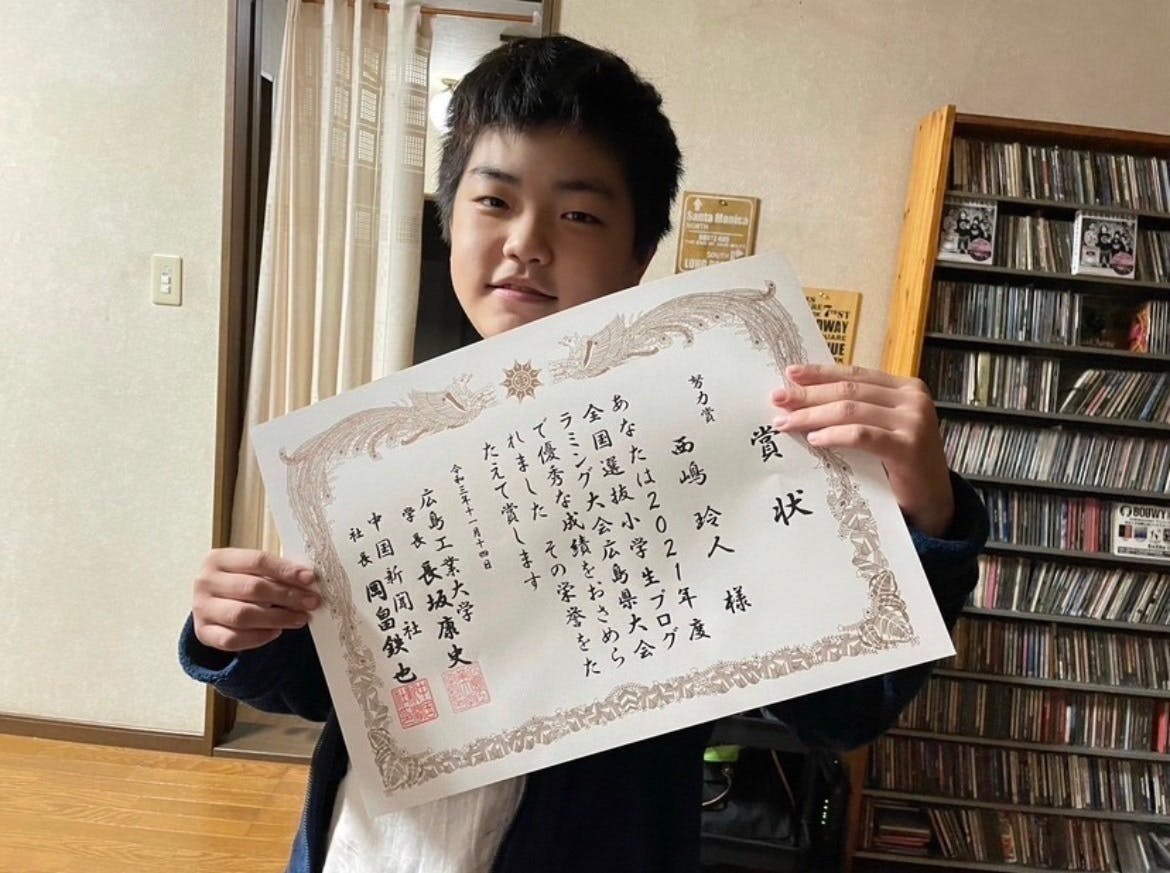 賞状
努力賞
西嶋 玲人 様
あなたは2021年度
全国選抜小学生プログ
ラミング大会広島県大会
で優秀な成績をおさめら
れました その栄誉をた
たえて賞します
令和三年十一月十四日
広島工業大学
学長 長坂康史
中国新聞社
社長 岡畠鉄也
Santa Monica
NORTH
SOUTH
7TH ST
BOØWY